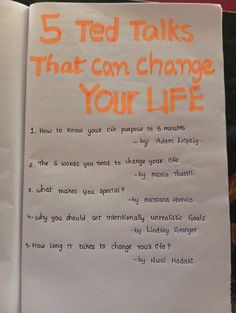 5 Ted Talks
That can change
YOUR LIFE
1. How to know your life purpose in 5 minutes
- by: Adam Leipzig.
2. The 6 words you need to change your life
- by Maria Thattil.
3. what makes you special?
- by Mariana Atencio
4. why you should set Intentionally unrealistic Goals
- by Lindsey Granger
5. How long it takes to change your life?
- by Nual Hadaki.